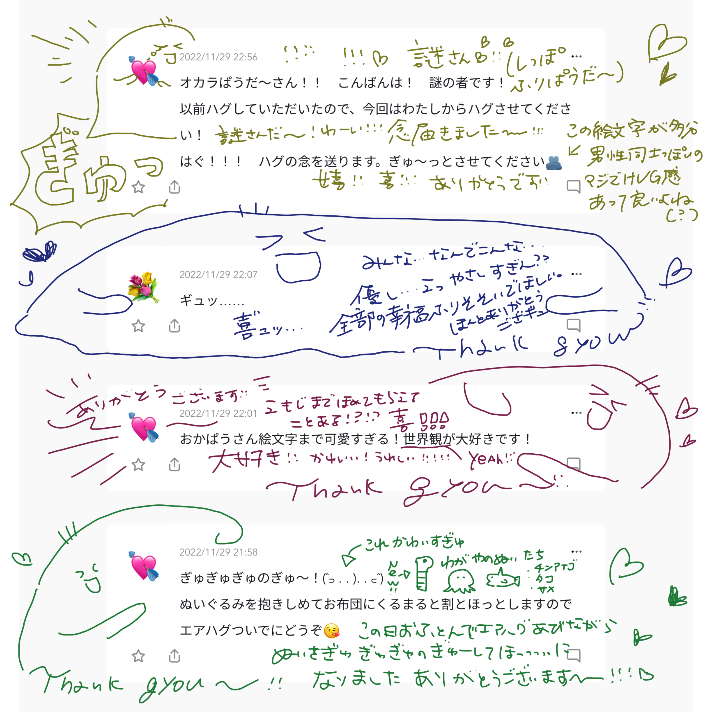 2022/11/29 22:56
!!! 謎さん (しっぽ
ふりぱうだ〜)
オカラぱうだ〜さん！！　こんばんは！　謎の者です！
以前ハグしていただいたので、今回はわたしからハグさせてくださ
い！
謎さんだ〜!わーい!!! 念届きました〜〜!!
はぐ！！！　ハグの念を送ります。ぎゅ〜っとさせてください🫂
嬉!! 喜!! ありがとうです!!
ぎゅっ
この絵文字が多分
男性同士っぽいの
マジでけしG感
あって良いよね
(?)
2022/11/29 22:07
ギュッ……
みんな…なんでこんな…
優し…えっ やさしすぎん??
喜ュッ…
全部の幸福ふりそそいでほしい。
ほんとありがとう
ございギュ
Thank gyou
ありがとうございます!!
2022/11/29 22:01
えもじまでほめてもらえて
ことある!?!? 喜
おかぱうさん絵文字まで可愛すぎる！世界観が大好きです！
大好き!! かわいい!うれしい!!!!! Yeah!!
Thank gyou〜
2022/11/29 21:58
これかわいすぎゅ
ぎゅぎゅぎゅのぎゅ〜！(˘ᴗ . . ). . ᴗ˘)
New→
わがやのぬいたち
・チンアナゴ
・タコ
・サメ
ぬいぐるみを抱きしめてお布団にくるまると割とほっとしますので
エアハグついでにどうぞ😘
この日おふとんでエアハグあびながら
ぬいさぎゅぎゅぎゅのぎゅーしてほっ……に
なりました ありがとうございます〜!!!
Thank gyou〜!!